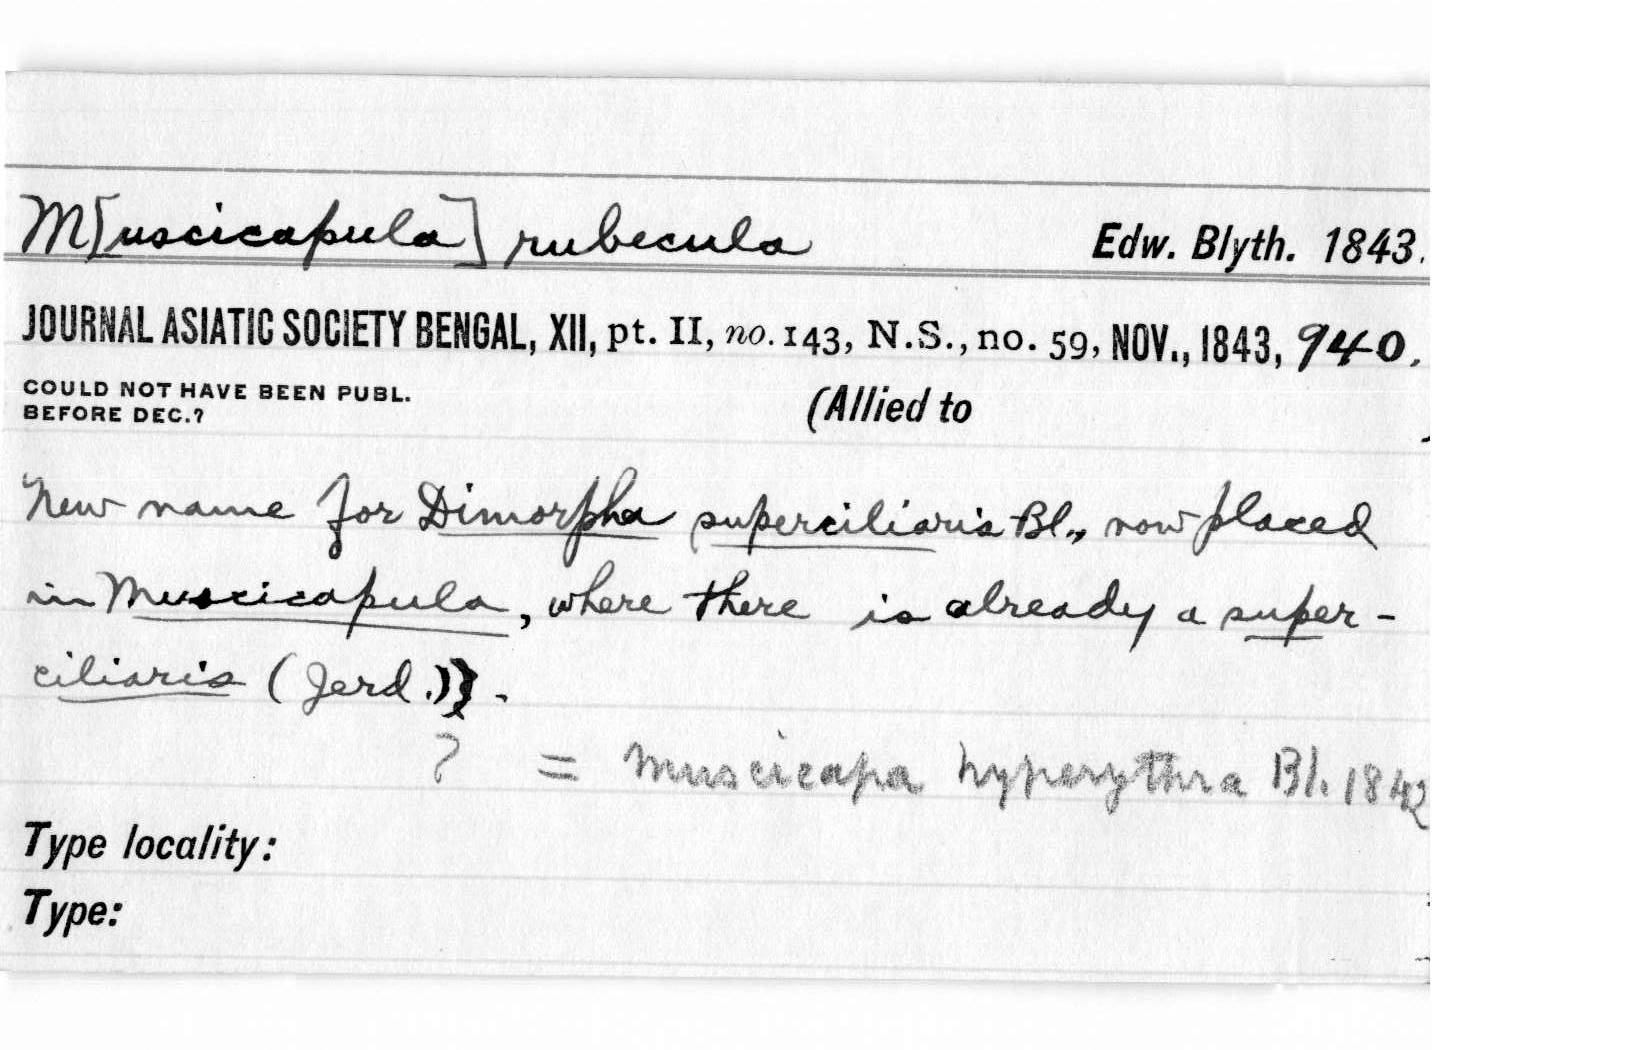 M[uscicapula] rubecula Edw. Blyth. 1843.
JOURNAL ASIATIC SOCIETY BENGAL, XII, pt. II, no. 143, N.S., no. 59, NOV., 1843, 940.
COULD NOT HAVE BEEN PUBL.
BEFORE DEC.?
(Allied to )
New name for Dimorpha superciliaris Bl., now placed
in Muscicapula, where there is already a super-
ciliaris (Jerd.)}.
? = Muscicapa hyperythra Bl. 1842
Type locality:
Type: